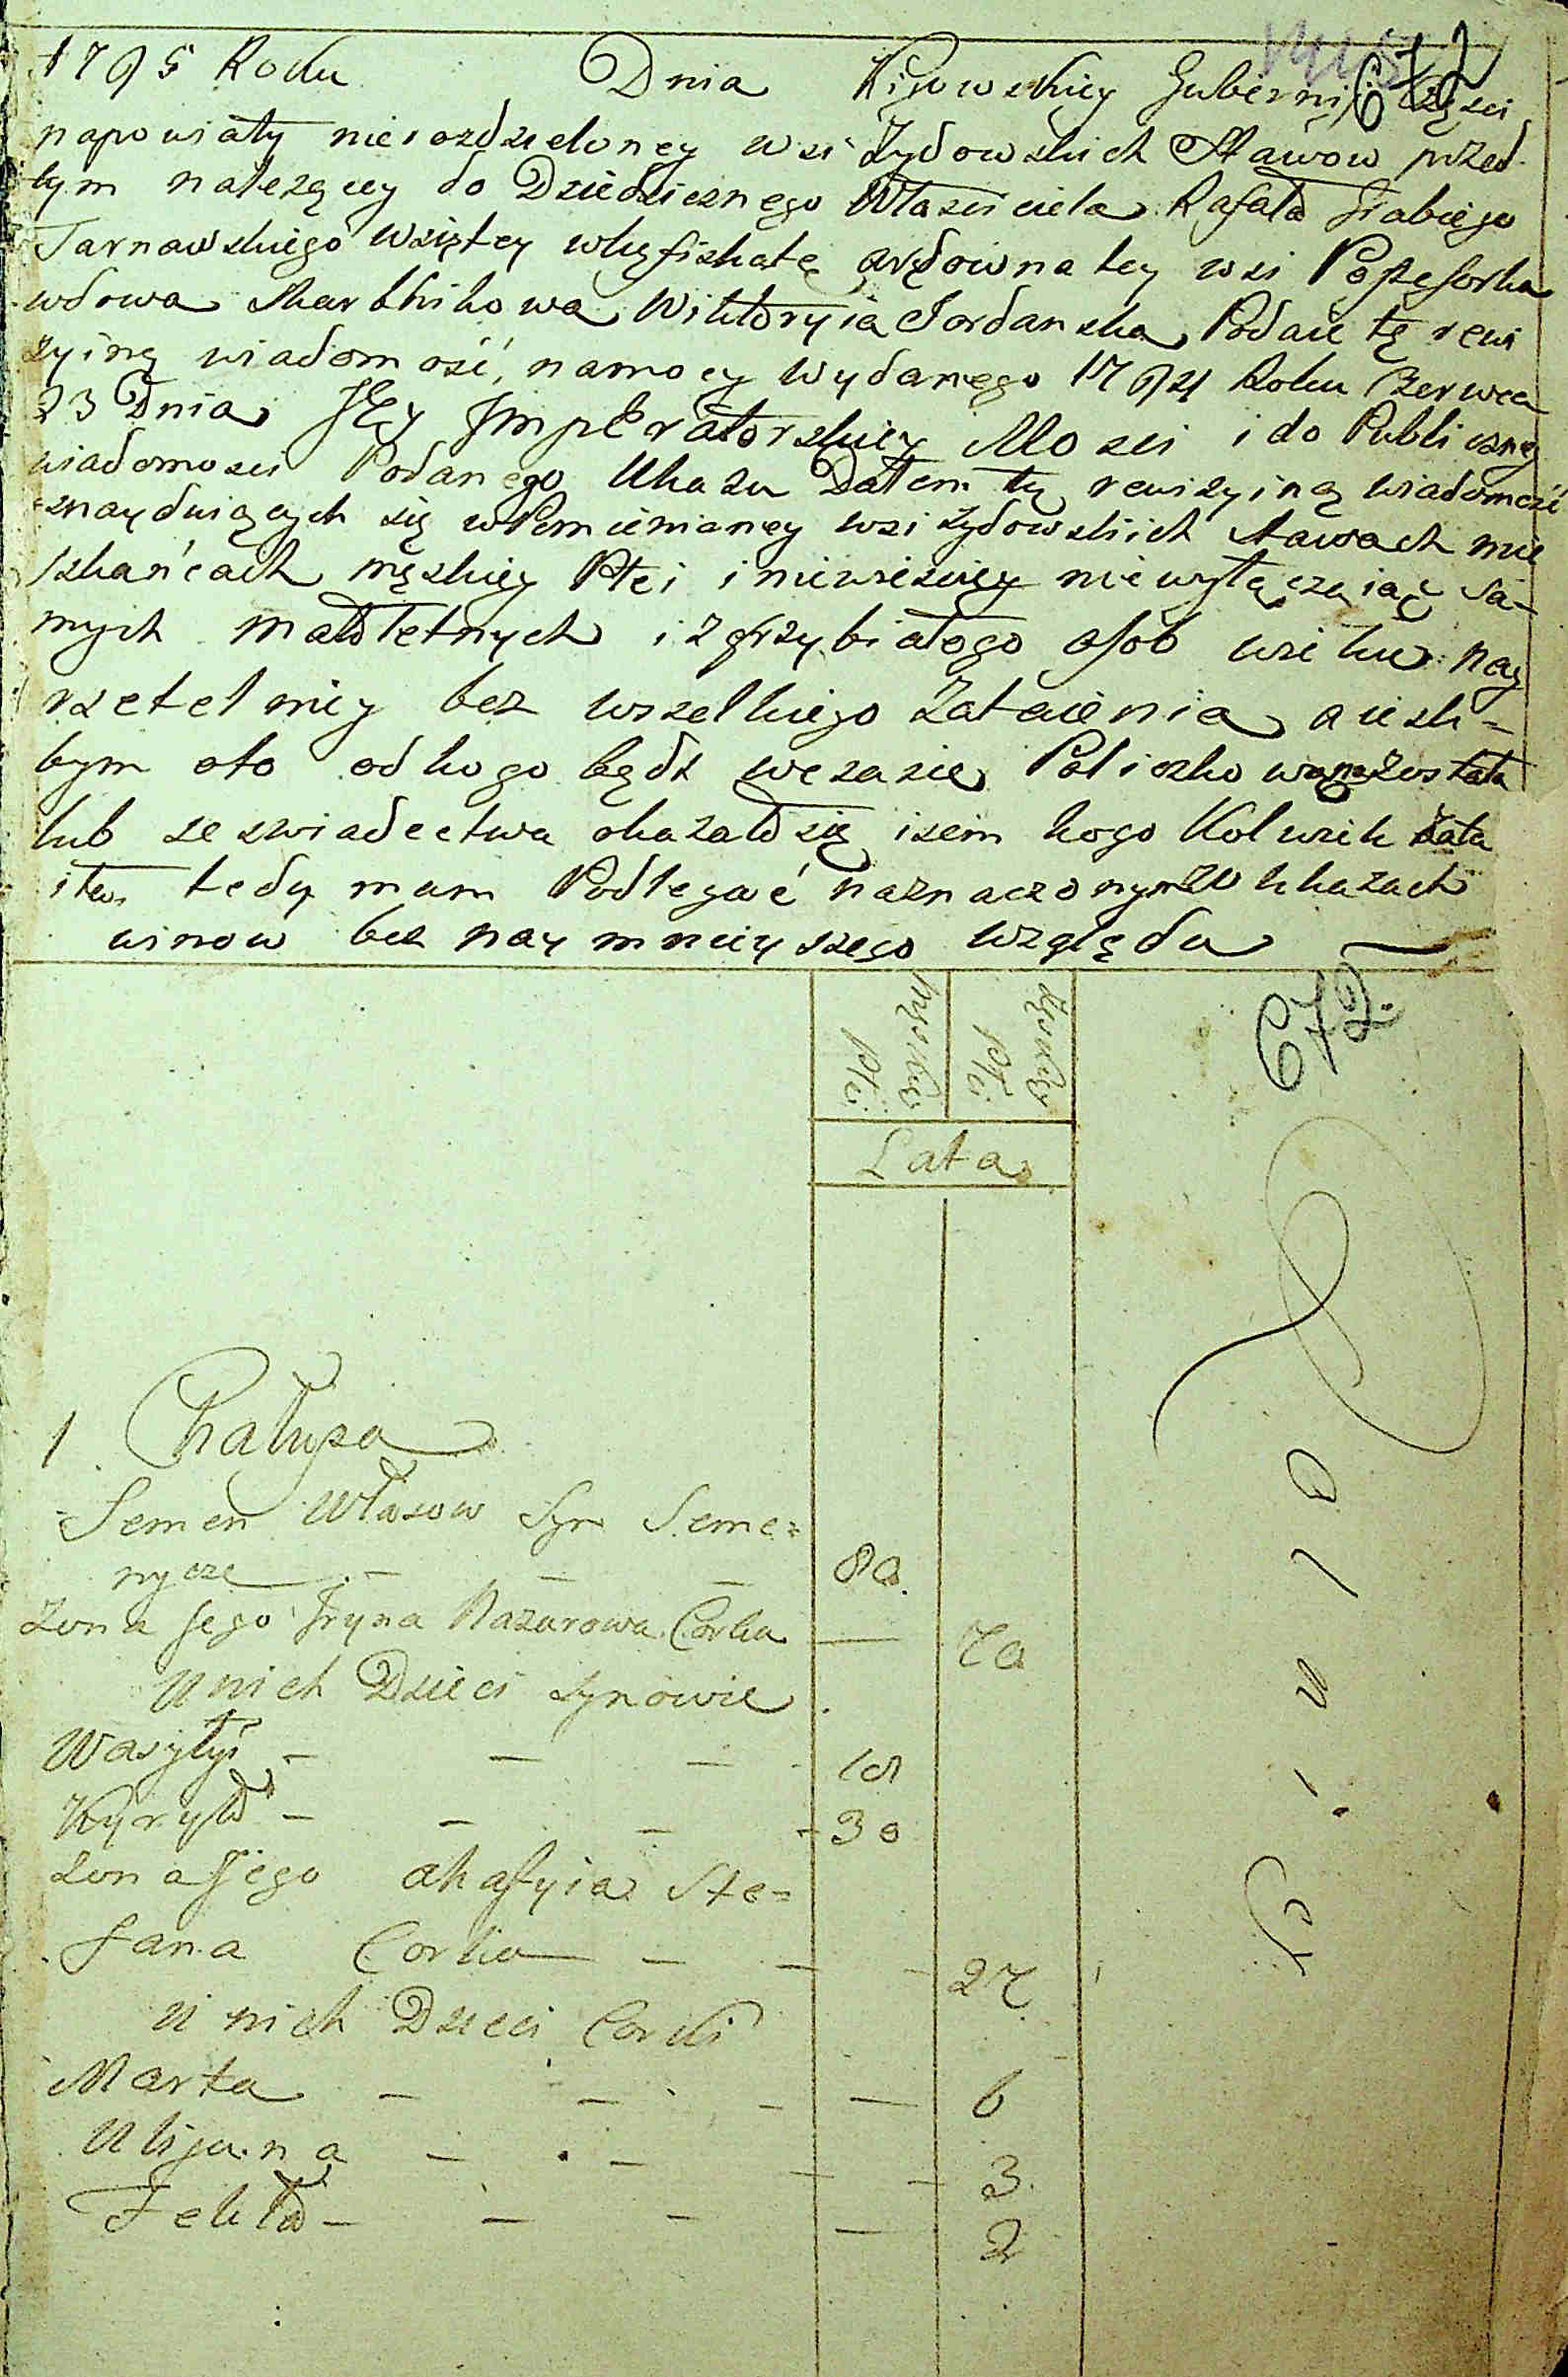 672
1795 Roku Dnia Kijowskiey Gubernij Części
napowiaty nierozdzieloney wsi Żydowskich Stawow przed
tym należącey do Dziedzicznego Własciciela Rafała Grabiego
Tarnawskiego wziętey wkąfiskatę gdowna tey wsi Possesorka
wdowa Skarbnikowa Wiktoryia Jordanska Podaie tę rewi
zyiną wiadomość, namocy wydanego 1794 Roku Czerwca
23 Dnia JEy JmpEratorskiey Mosci i do Publiczney
wiadomosci Podanego Ukazu Dałem tę rewizyiną wiadomość
znayduiących się w Pomienianey wsi Żydowskich Stawach mie
szkańcach męskiey Płci i niewiesciey niewyłączaiąc sa-
mych małoletnych i zgrzybiałego osob wieku nay
rzetelniey bez wszelkiego Zataienia a iesli=
bym oto od kogo bądź wczasie Poliszko
lub ze swiadectwa okazało się iżem kogo Kolwiek zata
ił tedy mam Podlegać naznaczonym w Ukazach
winow bez naymnieyszego względu
Męskiey Płci
Żęskiey Płci
672.
Lata
1 Chałupa
Semen Własow Syn Seme=
nycze - - - 80.
Zona Jego Jryna Nazarowa Corka — 70
U nich Dzieci synowie
Wasylyi - - - 18
Kyryło - - - 30
Zona Jego Ahafyia Ste=
fana Corka - - - 27
U nich Dzieci Corki
Marta - - - — 6
Ulijana - - - - 3.
Fekła - - - — 2